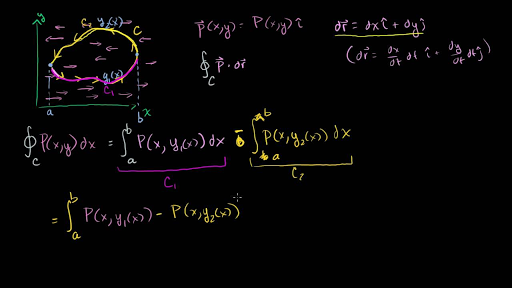 y
C₂ y₂(x) C
y₁(x)
C₁
a b x
P⃗(x,y) = P(x,y) î
∮_C P⃗ · dr⃗
dr⃗ = dx î + dy ĵ
(dr⃗ = dx/dt dt î + dy/dt dt ĵ)
∮_C P(x,y) dx = ∫_a^b P(x, y₁(x)) dx - ∫_a^b P(x, y₂(x)) dx
C₁ C₂
= ∫_a^b P(x, y₁(x)) - P(x, y₂(x))